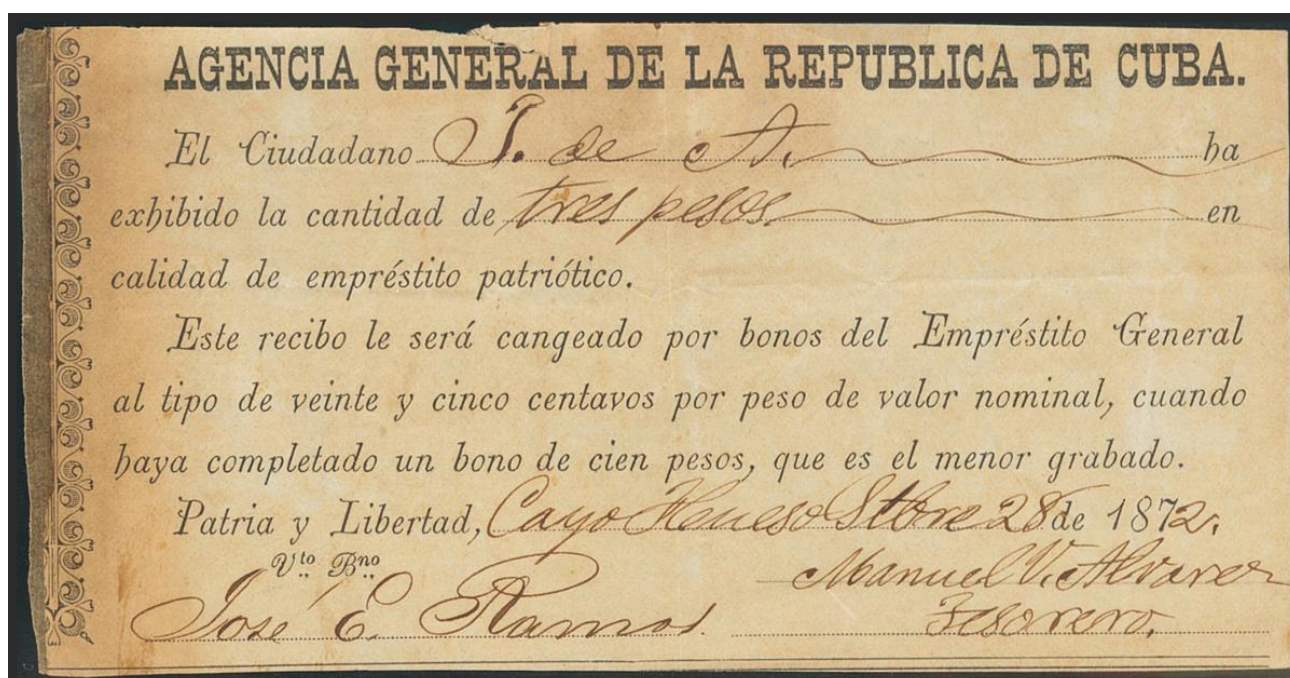 AGENCIA GENERAL DE LA REPUBLICA DE CUBA.
El Ciudadano J. de A. ha
exhibido la cantidad de tres pesos en
calidad de empréstito patriótico.
Este recibo le será cangeado por bonos del Empréstito General
al tipo de veinte y cinco centavos por peso de valor nominal, cuando
haya completado un bono de cien pesos, que es el menor grabado.
Patria y Libertad, Cayo Hueso Stbre 28 de 1872.
Vto Bno
Manuel V. Alvarez
José E. Ramos. Tesorero.